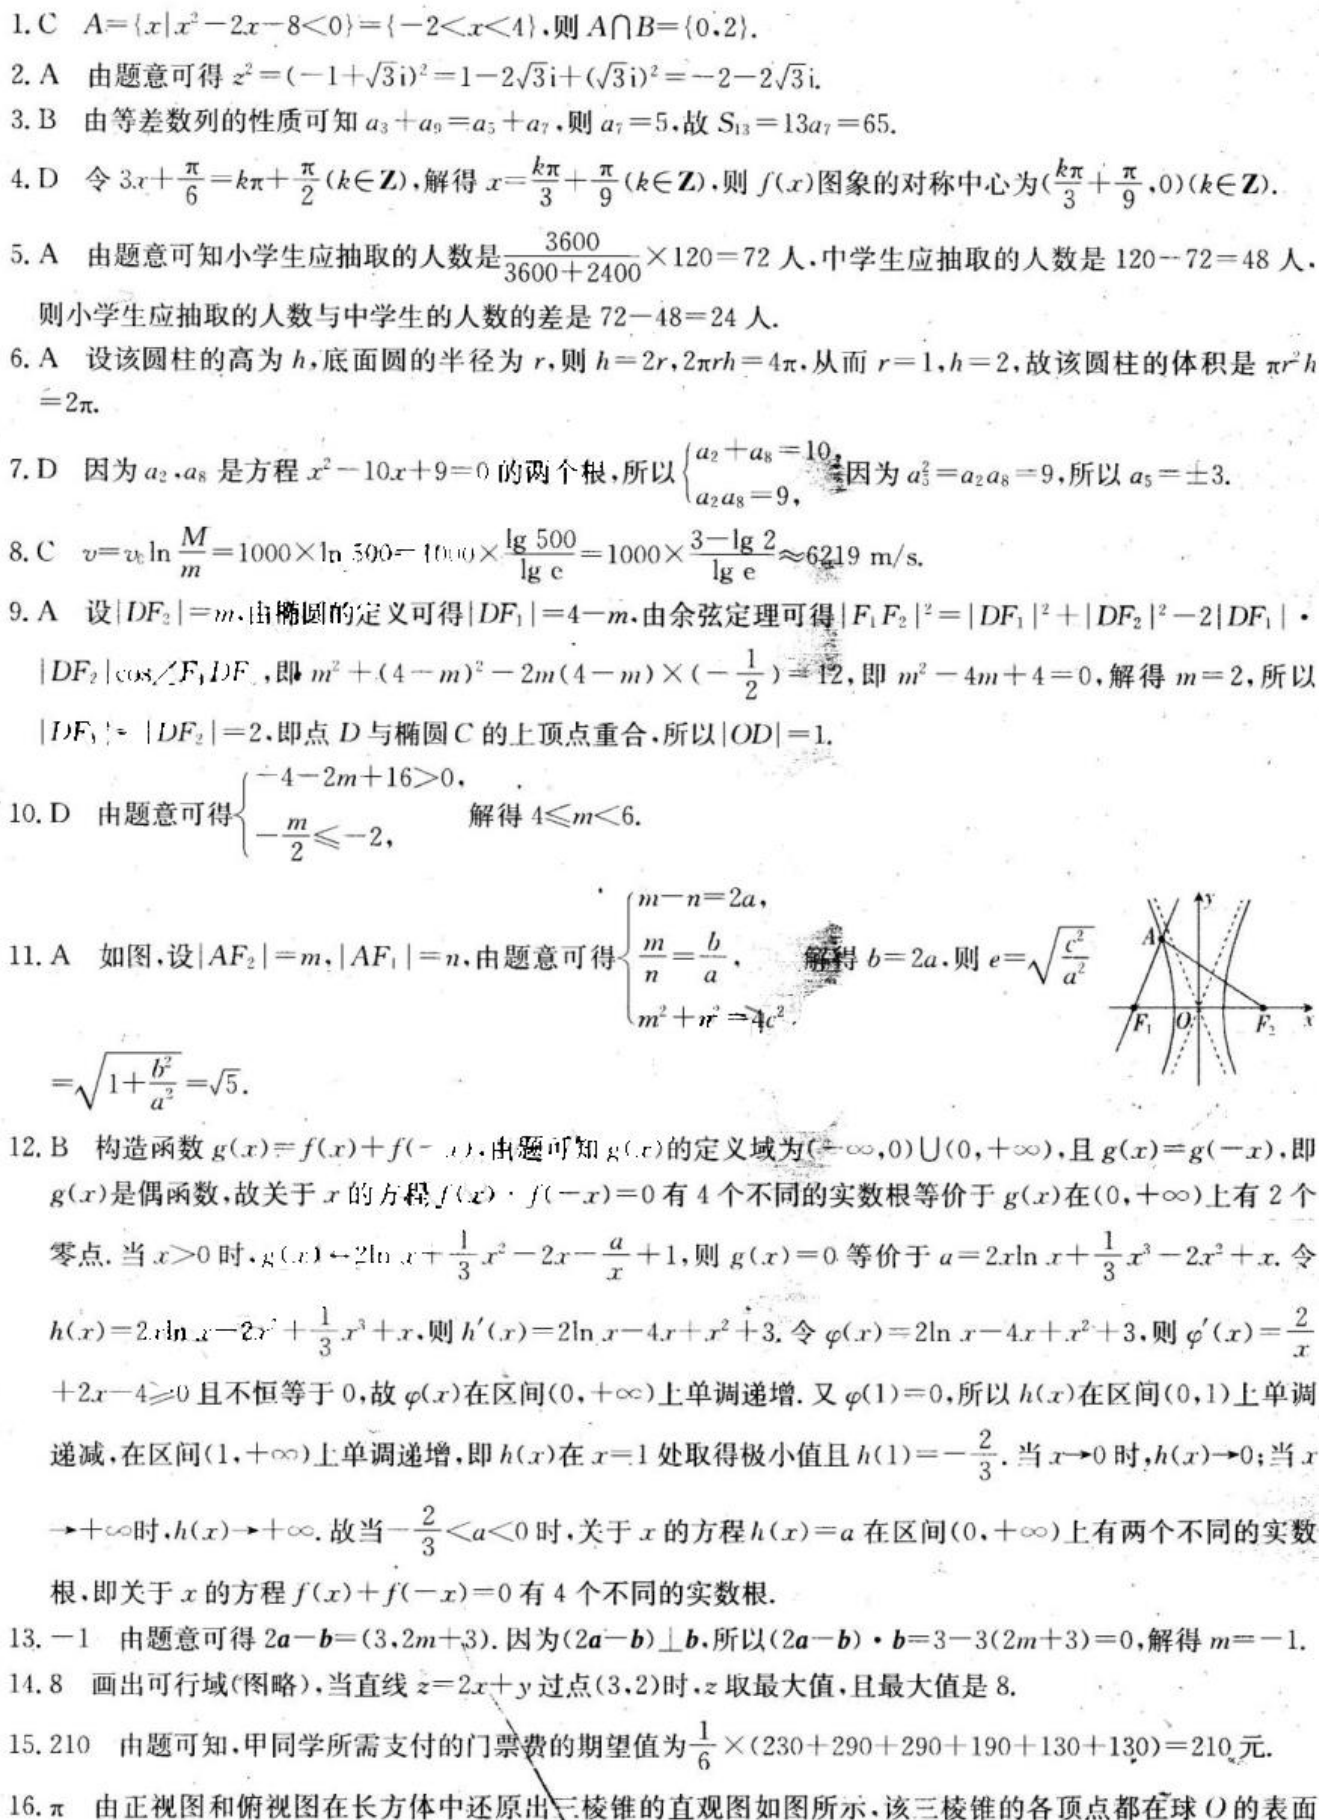 1. C A={x|x²−2x−8<0}={−2<x<4},则 A∩B={0,2}.
2. A 由题意可得 z²=(−1+√3i)²=1−2√3i+(√3i)²=−2−2√3i.
3. B 由等差数列的性质可知 a₃+a₉=a₅+a₇,则 a₇=5,故 S₁₃=13a₇=65.
4. D 令 3x+π/6=kπ+π/2(k∈Z),解得 x=kπ/3+π/9(k∈Z),则 f(x)图象的对称中心为(kπ/3+π/9,0)(k∈Z).
5. A 由题意可知小学生应抽取的人数是3600/(3600+2400)×120=72 人,中学生应抽取的人数是 120−72=48 人,
则小学生应抽取的人数与中学生的人数的差是 72−48=24 人.
6. A 设该圆柱的高为 h,底面圆的半径为 r,则 h=2r,2πrh=4π,从而 r=1,h=2,故该圆柱的体积是 πr²h
=2π.
7. D 因为 a₂,a₈ 是方程 x²−10x+9=0 的两个根,所以{a₂+a₈=10, a₂a₈=9, 因为 a₅²=a₂a₈=9,所以 a₅=±3.
8. C v=v₀ln M/m=1000×ln 500=1000×lg 500/lg e=1000×(3−lg 2)/lg e≈6219 m/s.
9. A 设|DF₂|=m,由椭圆的定义可得|DF₁|=4−m,由余弦定理可得|F₁F₂|²=|DF₁|²+|DF₂|²−2|DF₁|·
|DF₂|cos∠F₁DF₂,即 m²+(4−m)²−2m(4−m)×(−1/2)=12,即 m²−4m+4=0,解得 m=2,所以
|DF₁|=|DF₂|=2,即点 D 与椭圆 C 的上顶点重合,所以|OD|=1.
10. D 由题意可得{−4−2m+16>0, −m/2≤−2, 解得 4≤m<6.
11. A 如图,设|AF₂|=m,|AF₁|=n,由题意可得{m−n=2a, m/n=b/a, m²+n²=4c², 解得 b=2a,则 e=√(c²/a²)
=√(1+b²/a²)=√5.
A y F₁ O F₂ x
12. B 构造函数 g(x)=f(x)+f(−x),由题可知 g(x)的定义域为(−∞,0)∪(0,+∞),且 g(x)=g(−x),即
g(x)是偶函数,故关于 x 的方程 f(x)·f(−x)=0 有 4 个不同的实数根等价于 g(x)在(0,+∞)上有 2 个
零点. 当 x>0 时,g(x)=2ln x+1/3x²−2x−a/x+1,则 g(x)=0 等价于 a=2xln x+1/3x³−2x²+x. 令
h(x)=2xln x−2x²+1/3x³+x,则 h′(x)=2ln x−4x+x²+3. 令 φ(x)=2ln x−4x+x²+3,则 φ′(x)=2/x
+2x−4≥0 且不恒等于 0,故 φ(x)在区间(0,+∞)上单调递增. 又 φ(1)=0,所以 h(x)在区间(0,1)上单调
递减,在区间(1,+∞)上单调递增,即 h(x)在 x=1 处取得极小值且 h(1)=−2/3. 当 x→0 时,h(x)→0;当 x
→+∞时,h(x)→+∞. 故当−2/3<a<0 时,关于 x 的方程 h(x)=a 在区间(0,+∞)上有两个不同的实数
根,即关于 x 的方程 f(x)+f(−x)=0 有 4 个不同的实数根.
13. −1 由题意可得 2a−b=(3,2m+3). 因为(2a−b)⊥b,所以(2a−b)·b=3−3(2m+3)=0,解得 m=−1.
14. 8 画出可行域(图略),当直线 z=2x+y 过点(3,2)时,z 取最大值,且最大值是 8.
15. 210 由题可知,甲同学所需支付的门票费的期望值为1/6×(230+290+290+190+130+130)=210 元.
16. π 由正视图和俯视图在长方体中还原出三棱锥的直观图如图所示,该三棱锥的各顶点都在球 O 的表面